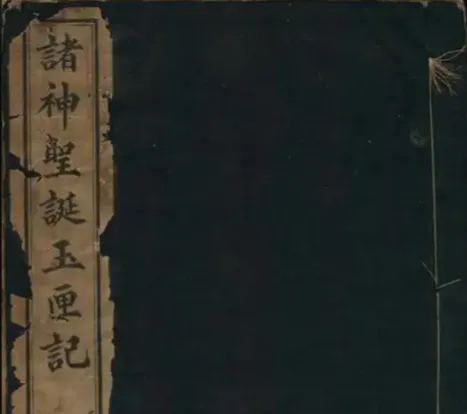 諸神聖誕玉匣記